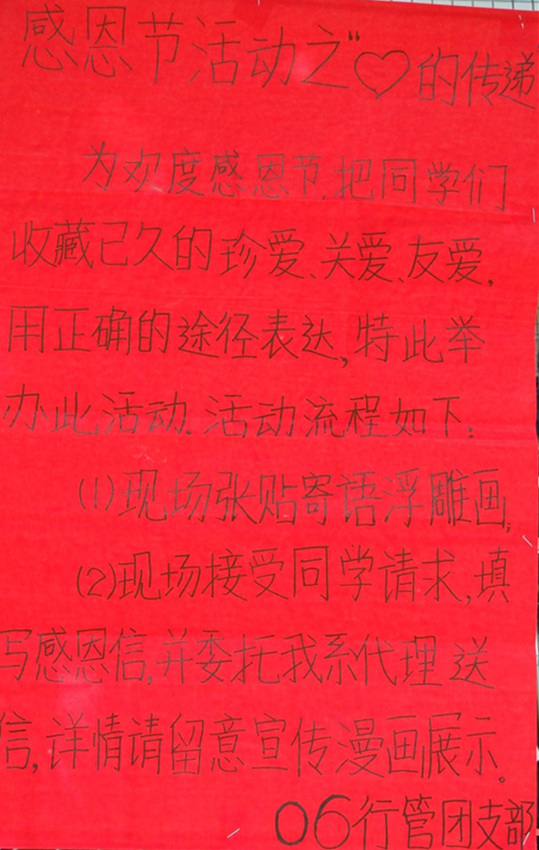 感恩节活动之“♡的传递
为欢度感恩节.把同学们
收藏已久的珍爱、关爱、友爱,
用正确的途径表达,特此举
办此活动.活动流程如下:
(1)现场张贴寄语浮雕画;
(2)现场接受同学请求,填
写感恩信,并委托我系代理送
信,详情请留意宣传漫画展示。
06行管团支部